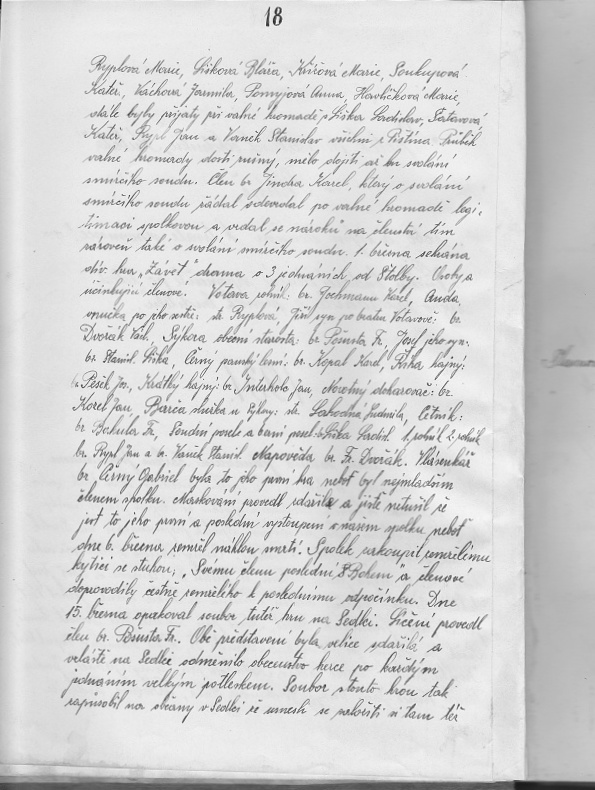 18
Ryplová Marie, Lišková Blaža, Křížová Marie, Soukupová
Kateř, Váchová Jarmila, Pomyjová Anna, Havlíčková Marie,
dále byly přijaty při valné hromadě p. Liška Ladislav, Tatarová
Kateř, Rypl Jan a Vaněk Stanislav všichni z Pištína. Průběh
valné hromady dosti rušný, mělo dojíti až ku svolání
smírčího soudu. Člen br. Jindra Karel, který o svolání
smírčího soudu žádal odevzdal po valné hromadě legi-
timaci spolkovou a vzdal se nároků na členství tím
zároveň také o svolání smírčího soudu. 1. března sehrána
div. hra „Závěť" drama o 3 jednáních od Stolby. Osoby a
účinkující členové. Votava rolník: br. Jochmann Karel, Anda
vnučka po jeho sestře: str. Ryplová, Jiří syn po bratru Votavově: br.
Dvořák Václ., Sýkora obecní starosta: br. Pěnsta Fr., Josef jeho syn:
br. Stanisl. Liška, Černý panský lesní: br. Kopal Karel, Říha, hajný:
br. Pešek Jos., Krátký hajný: br. Interholc Jan, Novotný dohazovač: br.
Korel Jan, Barča služka u Sýkory: str. Lahodná Ludmila, Četník:
br. Bakula Fr., Soudní posel a barní posel: br. Liška Ladisl. 1. rolník 2. rolník
br. Rypl Jan a br. Vaněk Stanisl. Nápověda br. Fr. Dvořák. Vlásenkář
br. Černý Gabriel byla to jeho první hra neboť byl nejmladším
členem spolku. Maskování provedl zdařile a jistě netušil že
jest to jeho první a poslední vystoupení v našem spolku neboť
dne 6. března zemřel náhlou smrtí. Spolek zakoupil zemřelému
kytici se stuhou, „Svému členu poslední S Bohem" a členové
doprovodily čestně zemřelého k poslednímu odpočinku. Dne
15. března opakoval soubor tutéž hru na Sedlci. Líčení provedl
člen br. Pěnsta Fr. Obě představení byla velice zdařilá a
zvláště na Sedlci odměnilo obecenstvo herce po každým
jednáním velkým potleskem. Soubor s touto hrou tak
zapůsobil na občany v Sedlci že usnesli se založiti si tam též